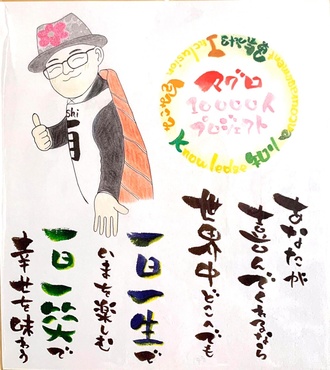 Inclusion
Knowledge
マグロ
10000人
プロジェクト
Shi
あなたが
喜んでくれるなら
世界中どこへでも
一日一生で
いまを楽しむ
一日一笑で
幸せを味わう